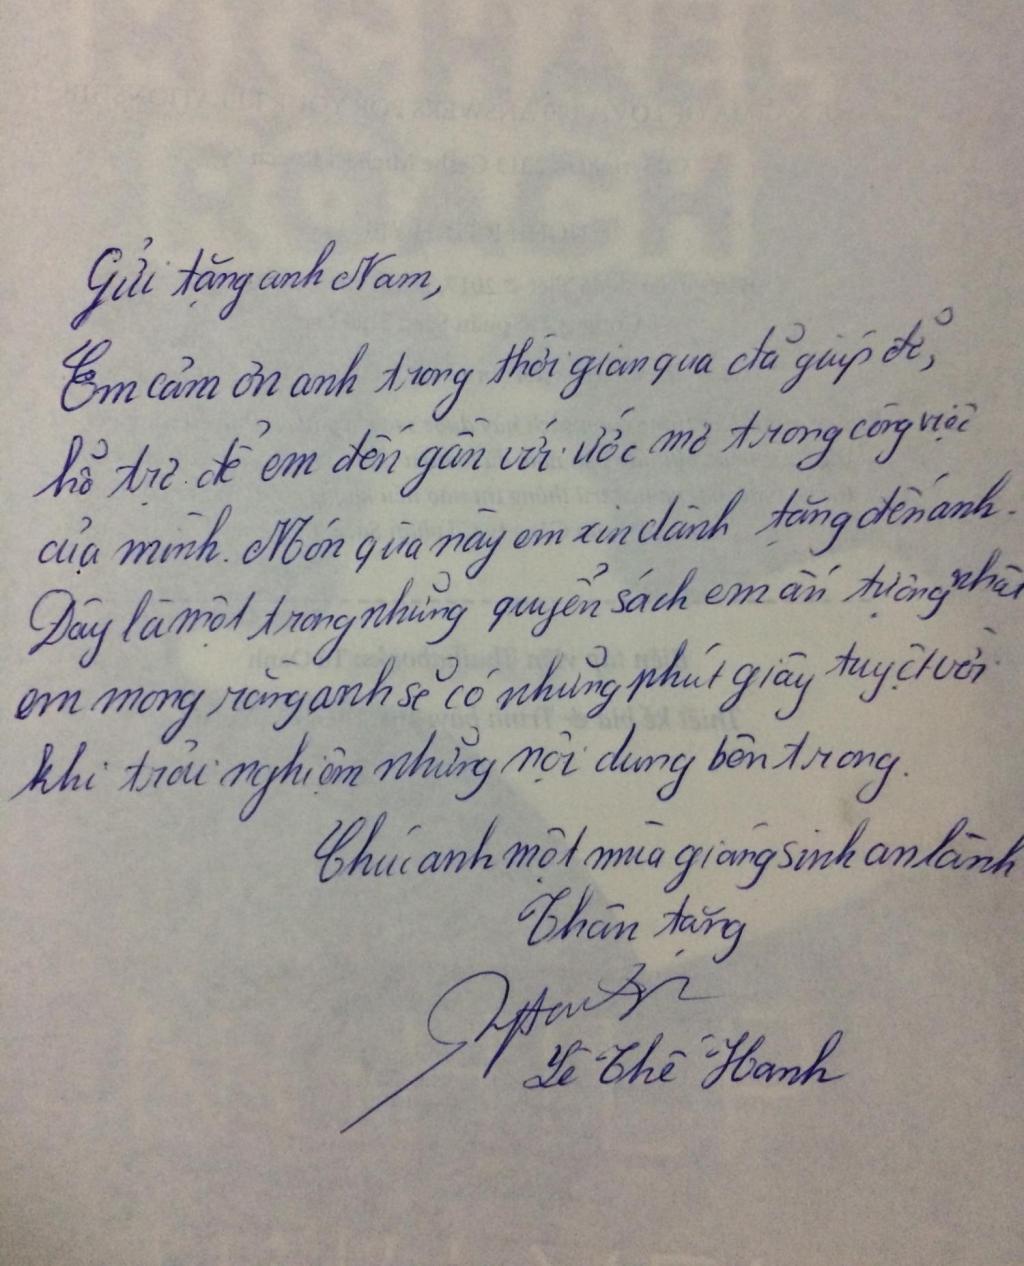 Gửi tặng anh Nam,
Em cảm ơn anh trong thời gian qua đã giúp đỡ,
hỗ trợ để em đến gần với ước mơ trong công việc
của mình. Món quà này em xin dành tặng đến anh.
Đây là một trong những quyển sách em ấn tượng nhất
em mong rằng anh sẽ có những phút giây tuyệt vời
khi trải nghiệm những nội dung bên trong.
Chúc anh một mùa giáng sinh an lành
Thân tặng
Lê Thế Hanh